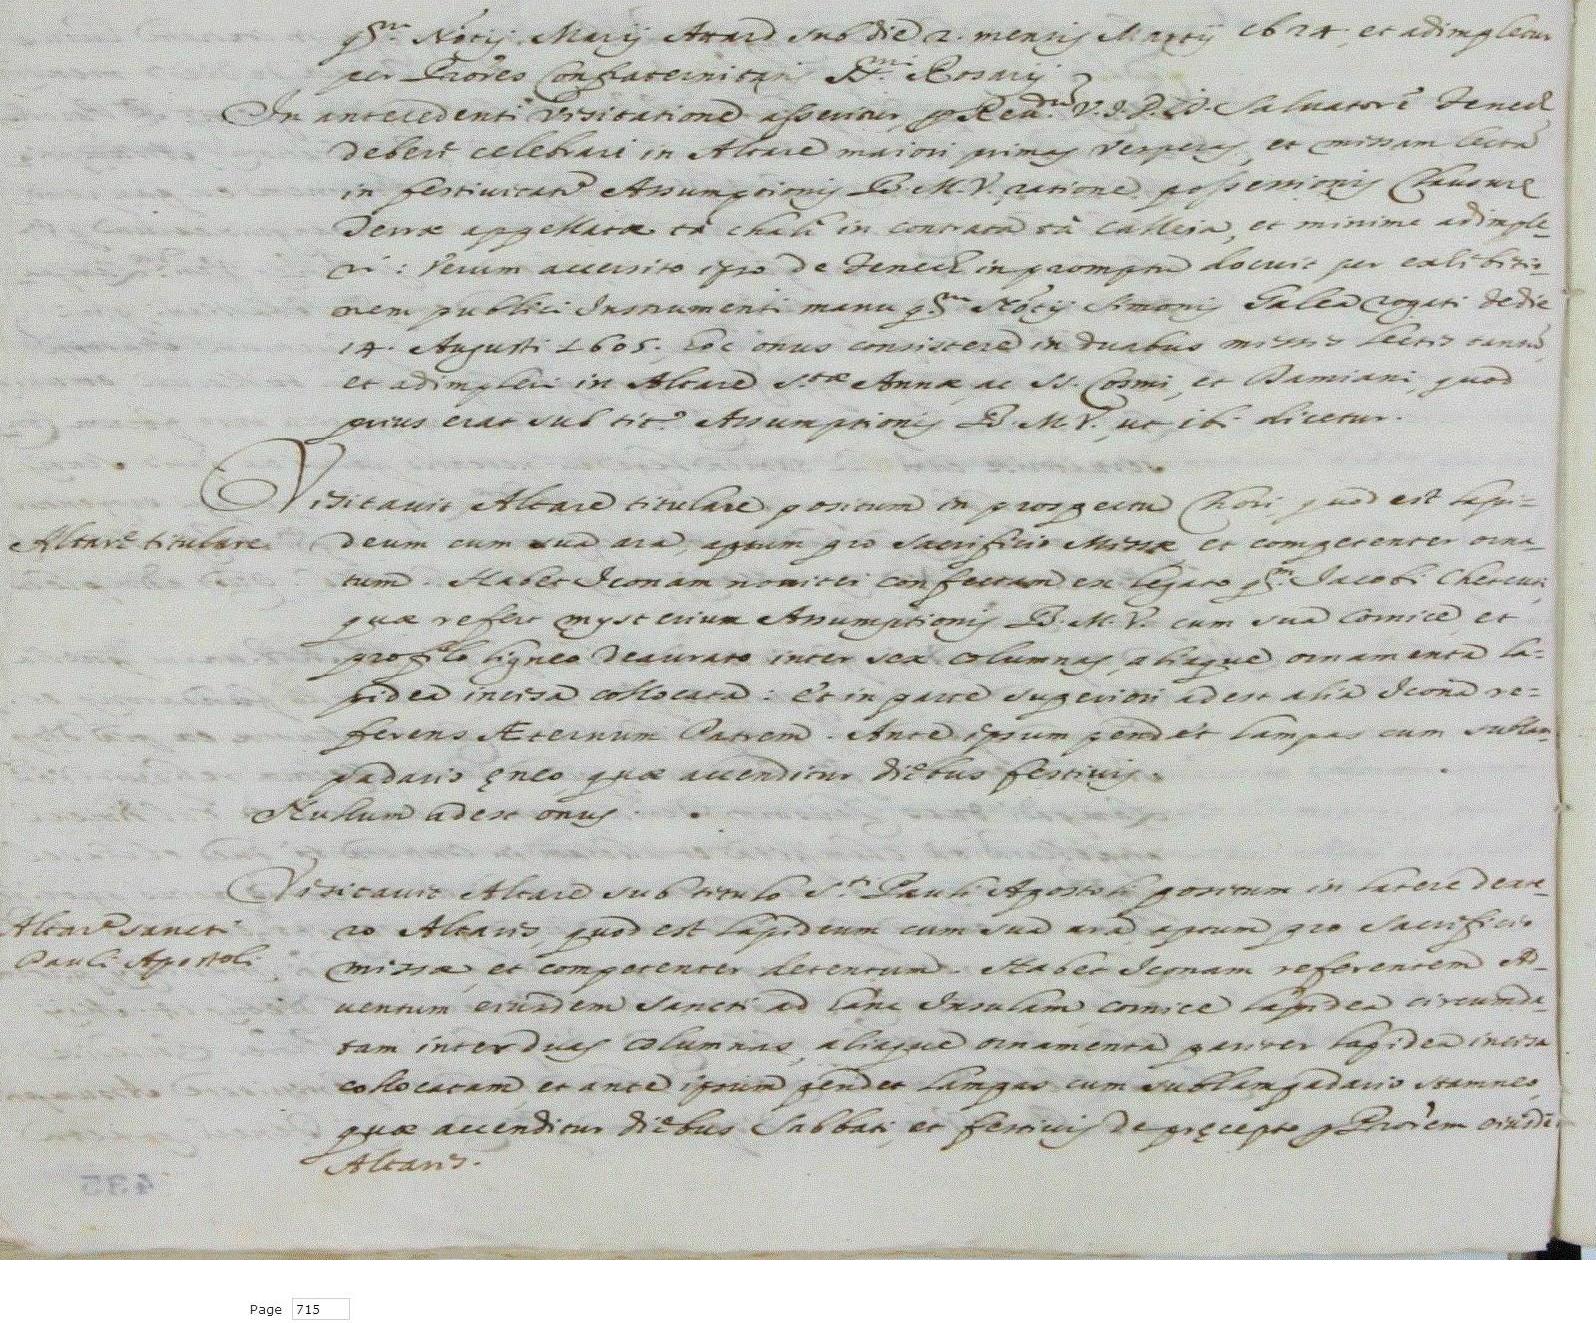 qm. Notij Marij Attard sub die 2. mensis Martij 1624, et adimpletur
per Prores Confraternitatis SSmi. Rosarij
In antecedenti Visitatione asseritur p Reud. V.I.D.D. Salvatore Fenech
debere celebrari in Altare maiori primas Vesperas, et missam lectā
in festivitate Assumptionis B.M.V. ratione possessionis Clausure
Terræ appellatæ ta Chali in contrata ta Calleia, et minime adimple-
ri: Verum accersito ipso de Fenech in promptu docuit per exhibitio-
nem publici Instrumenti manu qm Notij Simonis Galea rogati de die
14. Augusti 1605. hoc onus consistere in duabus missis lectis tantū,
et adimpleri in Altare S.tæ Annæ, ac SS. Cosmi, et Damiani, quod
prius erat sub tit.o Assumptionis B.M.V., ut ibi dicetur.
Visitavit Altare titulare positum in prospectu Chori, quod est lapi-
Altare titulare.
deum cum sua ara, aptum pro sacrificio Missæ et competenter orna-
tum. Habet Iconam noviter confectam ex legato qm. Jacobi
quæ refert mysterium Assumptionis B.M.V. cum sua cornice, et
profilo ligneo deaurato inter sex columnas, aliaque ornamenta la-
pidea incisa collocata: Et in parte superiori adest alia Icona re-
ferens Æternum Patrem. Ante ipsum pendet lampas cum sublam-
padario ęneo, quæ accenditur diebus festivis.
Nullum adest onus.
Visitavit Altare sub titulo S.ti Pauli Apostoli positum in latere dexte-
Altare Sancti
Pauli Apostoli
ro Altaris, quod est lapideum cum sua ara, aptum pro Sacrificio
missæ, et competenter detentum. Habet Iconam referentem Ad-
ventum eiusdem Sancti ad hanc Insulam, cornice lapidea circumda-
tam inter duas columnas, aliaque ornamenta pariter lapidea incisa
collocatam, et ante ipsum pendet lampas cum sublampadario stamneo,
quæ accenditur diebus Sabbati, et festivis de pręcepto p Prorem eiusdē
Altaris.
435
Page 715